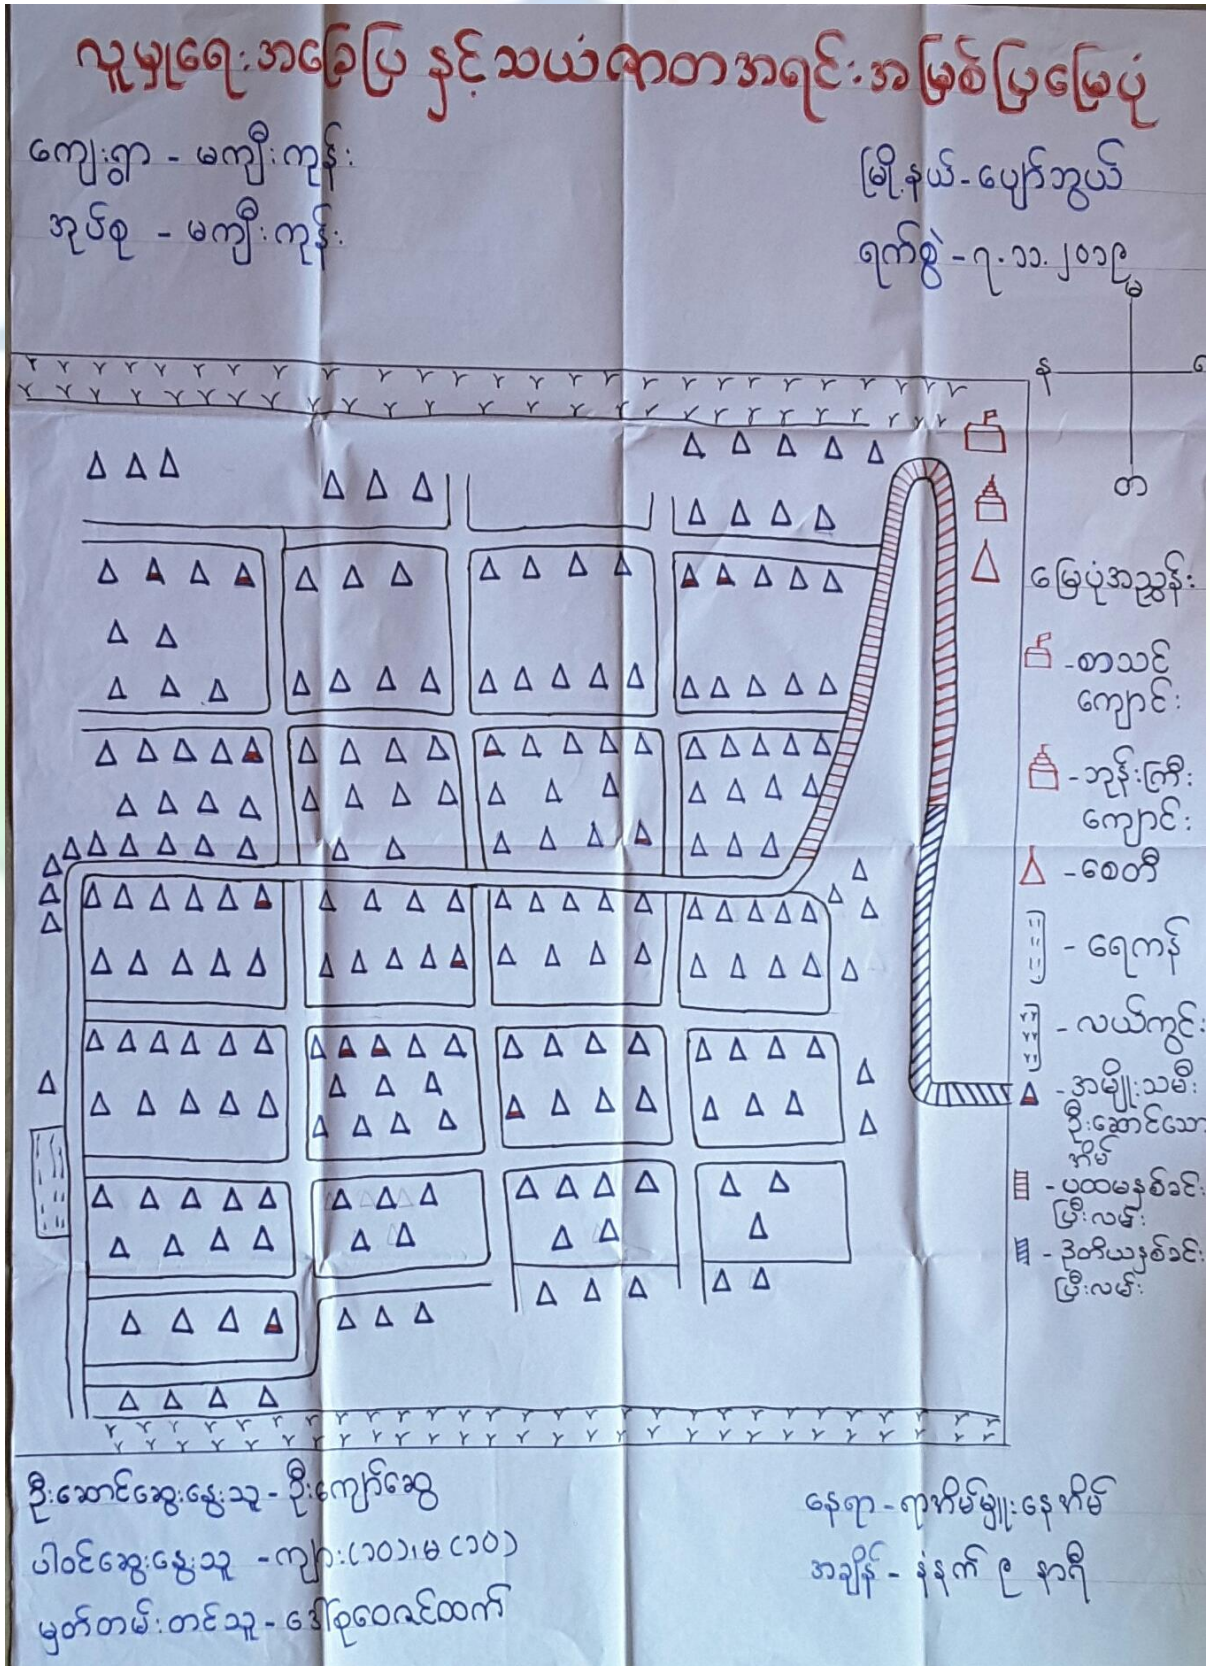 လူမှုရေးအခြေပြ နှင့်သယံဇာတအရင်းအမြစ်ပြမြေပုံ
ကျေးရွာ - မကျီးကုန်း
အုပ်စု - မကျီးကုန်း
မြို့နယ် - ပျော်ဘွယ်
ရက်စွဲ - ၇.၁၁.၂၀၁၉
မ
န
တ
မြေပုံအညွှန်း
- စာသင်
ကျောင်း
- ဘုန်းကြီး
ကျောင်း
- စေတီ
- ရေကန်
- လယ်ကွင်း
- အမျိုးသမီး
ဦးဆောင်သော
အိမ်
- ပထမနှစ်ခင်း
ပြီးလမ်း
- ဒုတိယနှစ်ခင်း
ပြီးလမ်း
ဦးဆောင်ဆွေးနွေးသူ - ဦးကျော်ဆွေ
ပါဝင်ဆွေးနွေးသူ - ကျား(၁၀)၊မ(၁၀)
မှတ်တမ်းတင်သူ - ဒေါ်စုဝေဇင်ထက်
နေရာ - ရာအိမ်မှူးနေအိမ်
အချိန် - နံနက် ၉ နာရီ